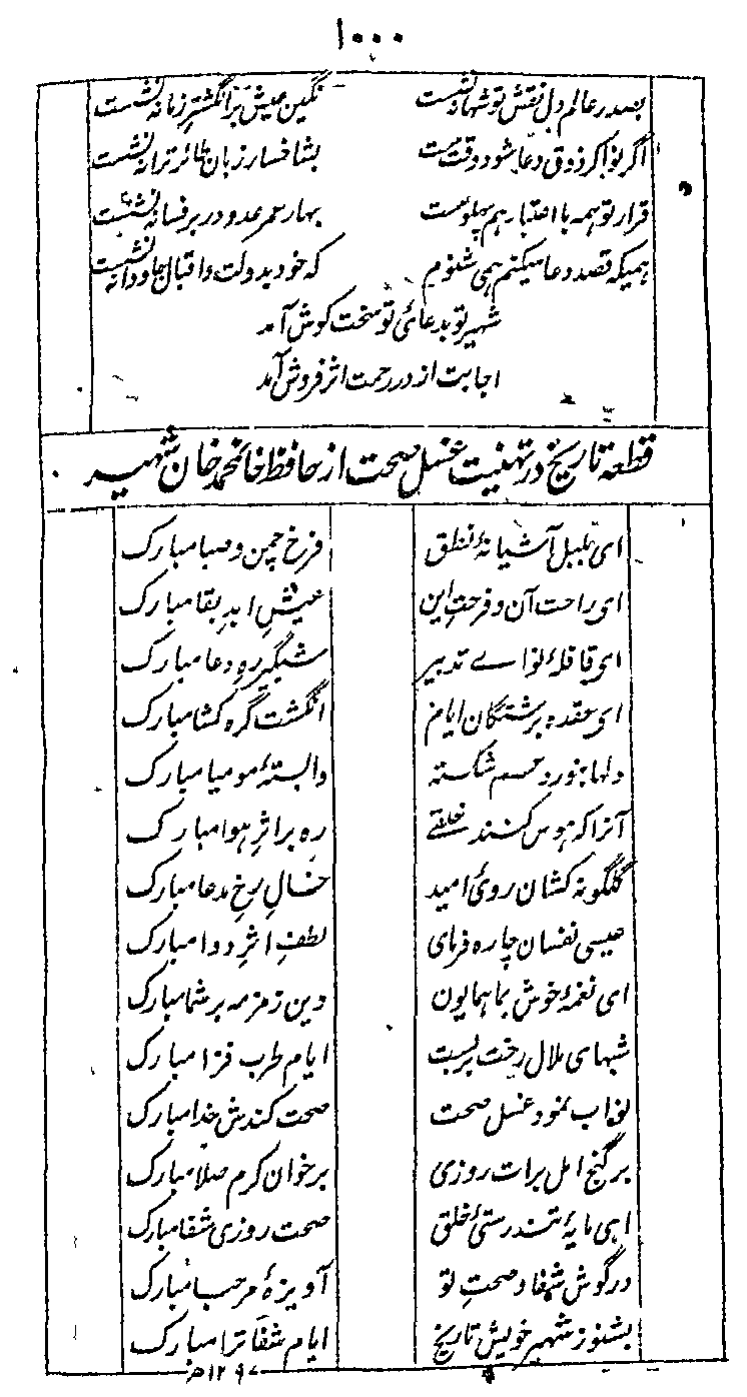 ۱۰۰۰
بصدر عالم دل نقش تو شهانه نشست نگین عیش بر انگشتر زمانه نشست
اگر نواگر ذوق دعا شود وقت ست بشاخسار زبان طائر ترانه نشست
قرار تو همه با اعتبار هم پهلوست بهار عمر عدو در بر فسانه نشست
همیکه قصد دعا میکنم همی شنوم که خود بدولت و اقبال جاودانه نشست
شهیر تو بدعای تو سخت کوش آمد
اجابت از در رحمت اثر فروش آمد
قطعه تاریخ در تهنیت غسل صحت از حافظ خان محمد خان شهیر
ای بلبل آشیانهٔ نطق فرخ چمن و صبا مبارک
ای راحت آن و فرحت این عیش ابد بقا مبارک
ای قافلهٔ نوای تدبیر شبگیر ره دعا مبارک
ای عقده برشتگان ایام انگشت گره کشا مبارک
دلها بنورد جسم شکسته وابستهٔ مومیا مبارک
آنرا که هوس کنند خلقے ره بر اثر هوا مبارک
گلگونه کشان روئ امید خال رخ مدعا مبارک
عیسی نفسان چاره فرمای لطف اثر دوا مبارک
ای نغمهٔ خوش بما همایون وین زمزمه بر شما مبارک
شبهای ملال رخت بربست ایام طرب فزا مبارک
نواب نمود غسل صحت صحت کندش خدا مبارک
بر گنج امل برات روزی بر خوان کرم صلا مبارک
ای مایهٔ تندرستئ خلق صحت روزی شفا مبارک
در گوش شفا و صحت تو آویزهٔ مرحبا مبارک
بشنو ز شهیر خویش تاریخ ایام شفا ترا مبارک
۱۲۹۷ھ